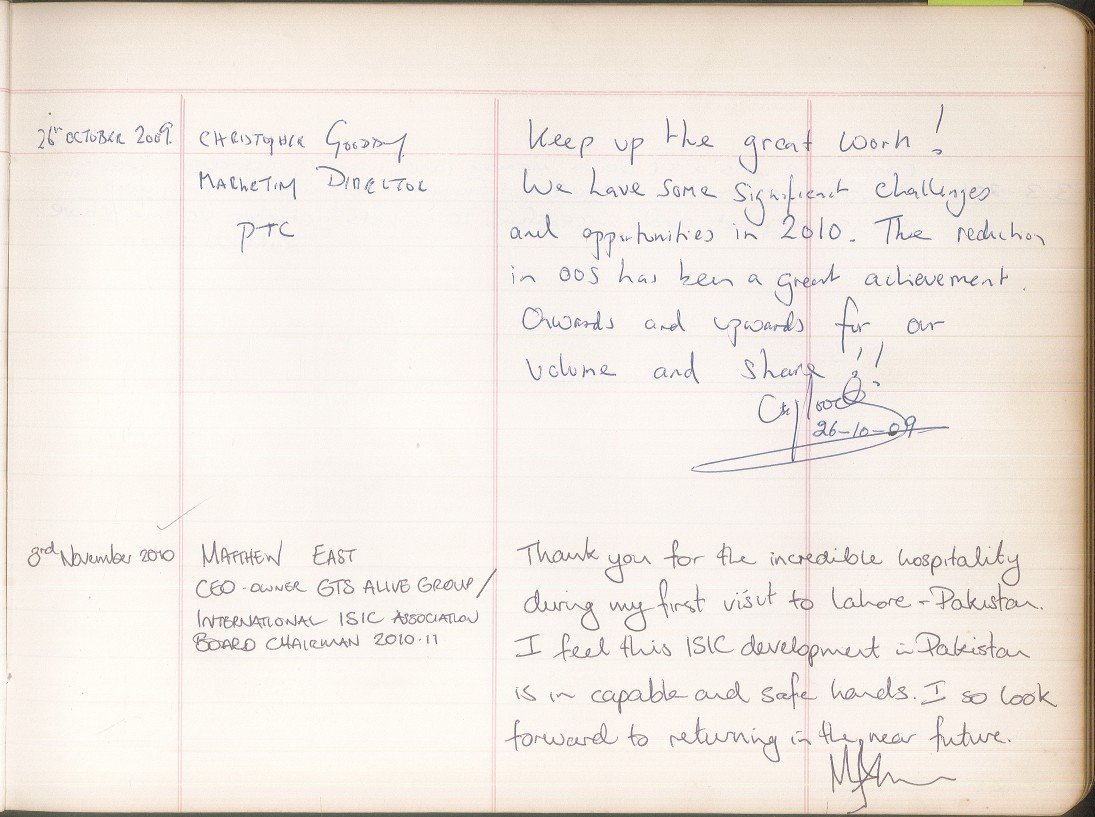 26th OCTOBER 2009.
CHRISTOPHER GOODDY
MARKETING DIRECTOR
PTC
Keep up the great work!
We have some significant challenges
and opportunities in 2010. The reduction
in OOS has been a great achievement.
Onwards and upwards for our
volume and share!!
26-10-09
3rd November 2010
MATTHEW EAST
CEO-OWNER GTS ALIVE GROUP/
INTERNATIONAL ISIC ASSOCIATION
BOARD CHAIRMAN 2010-11
Thank you for the incredible hospitality
during my first visit to Lahore - Pakistan.
I feel this ISIC development in Pakistan
is in capable and safe hands. I so look
forward to returning in the near future.